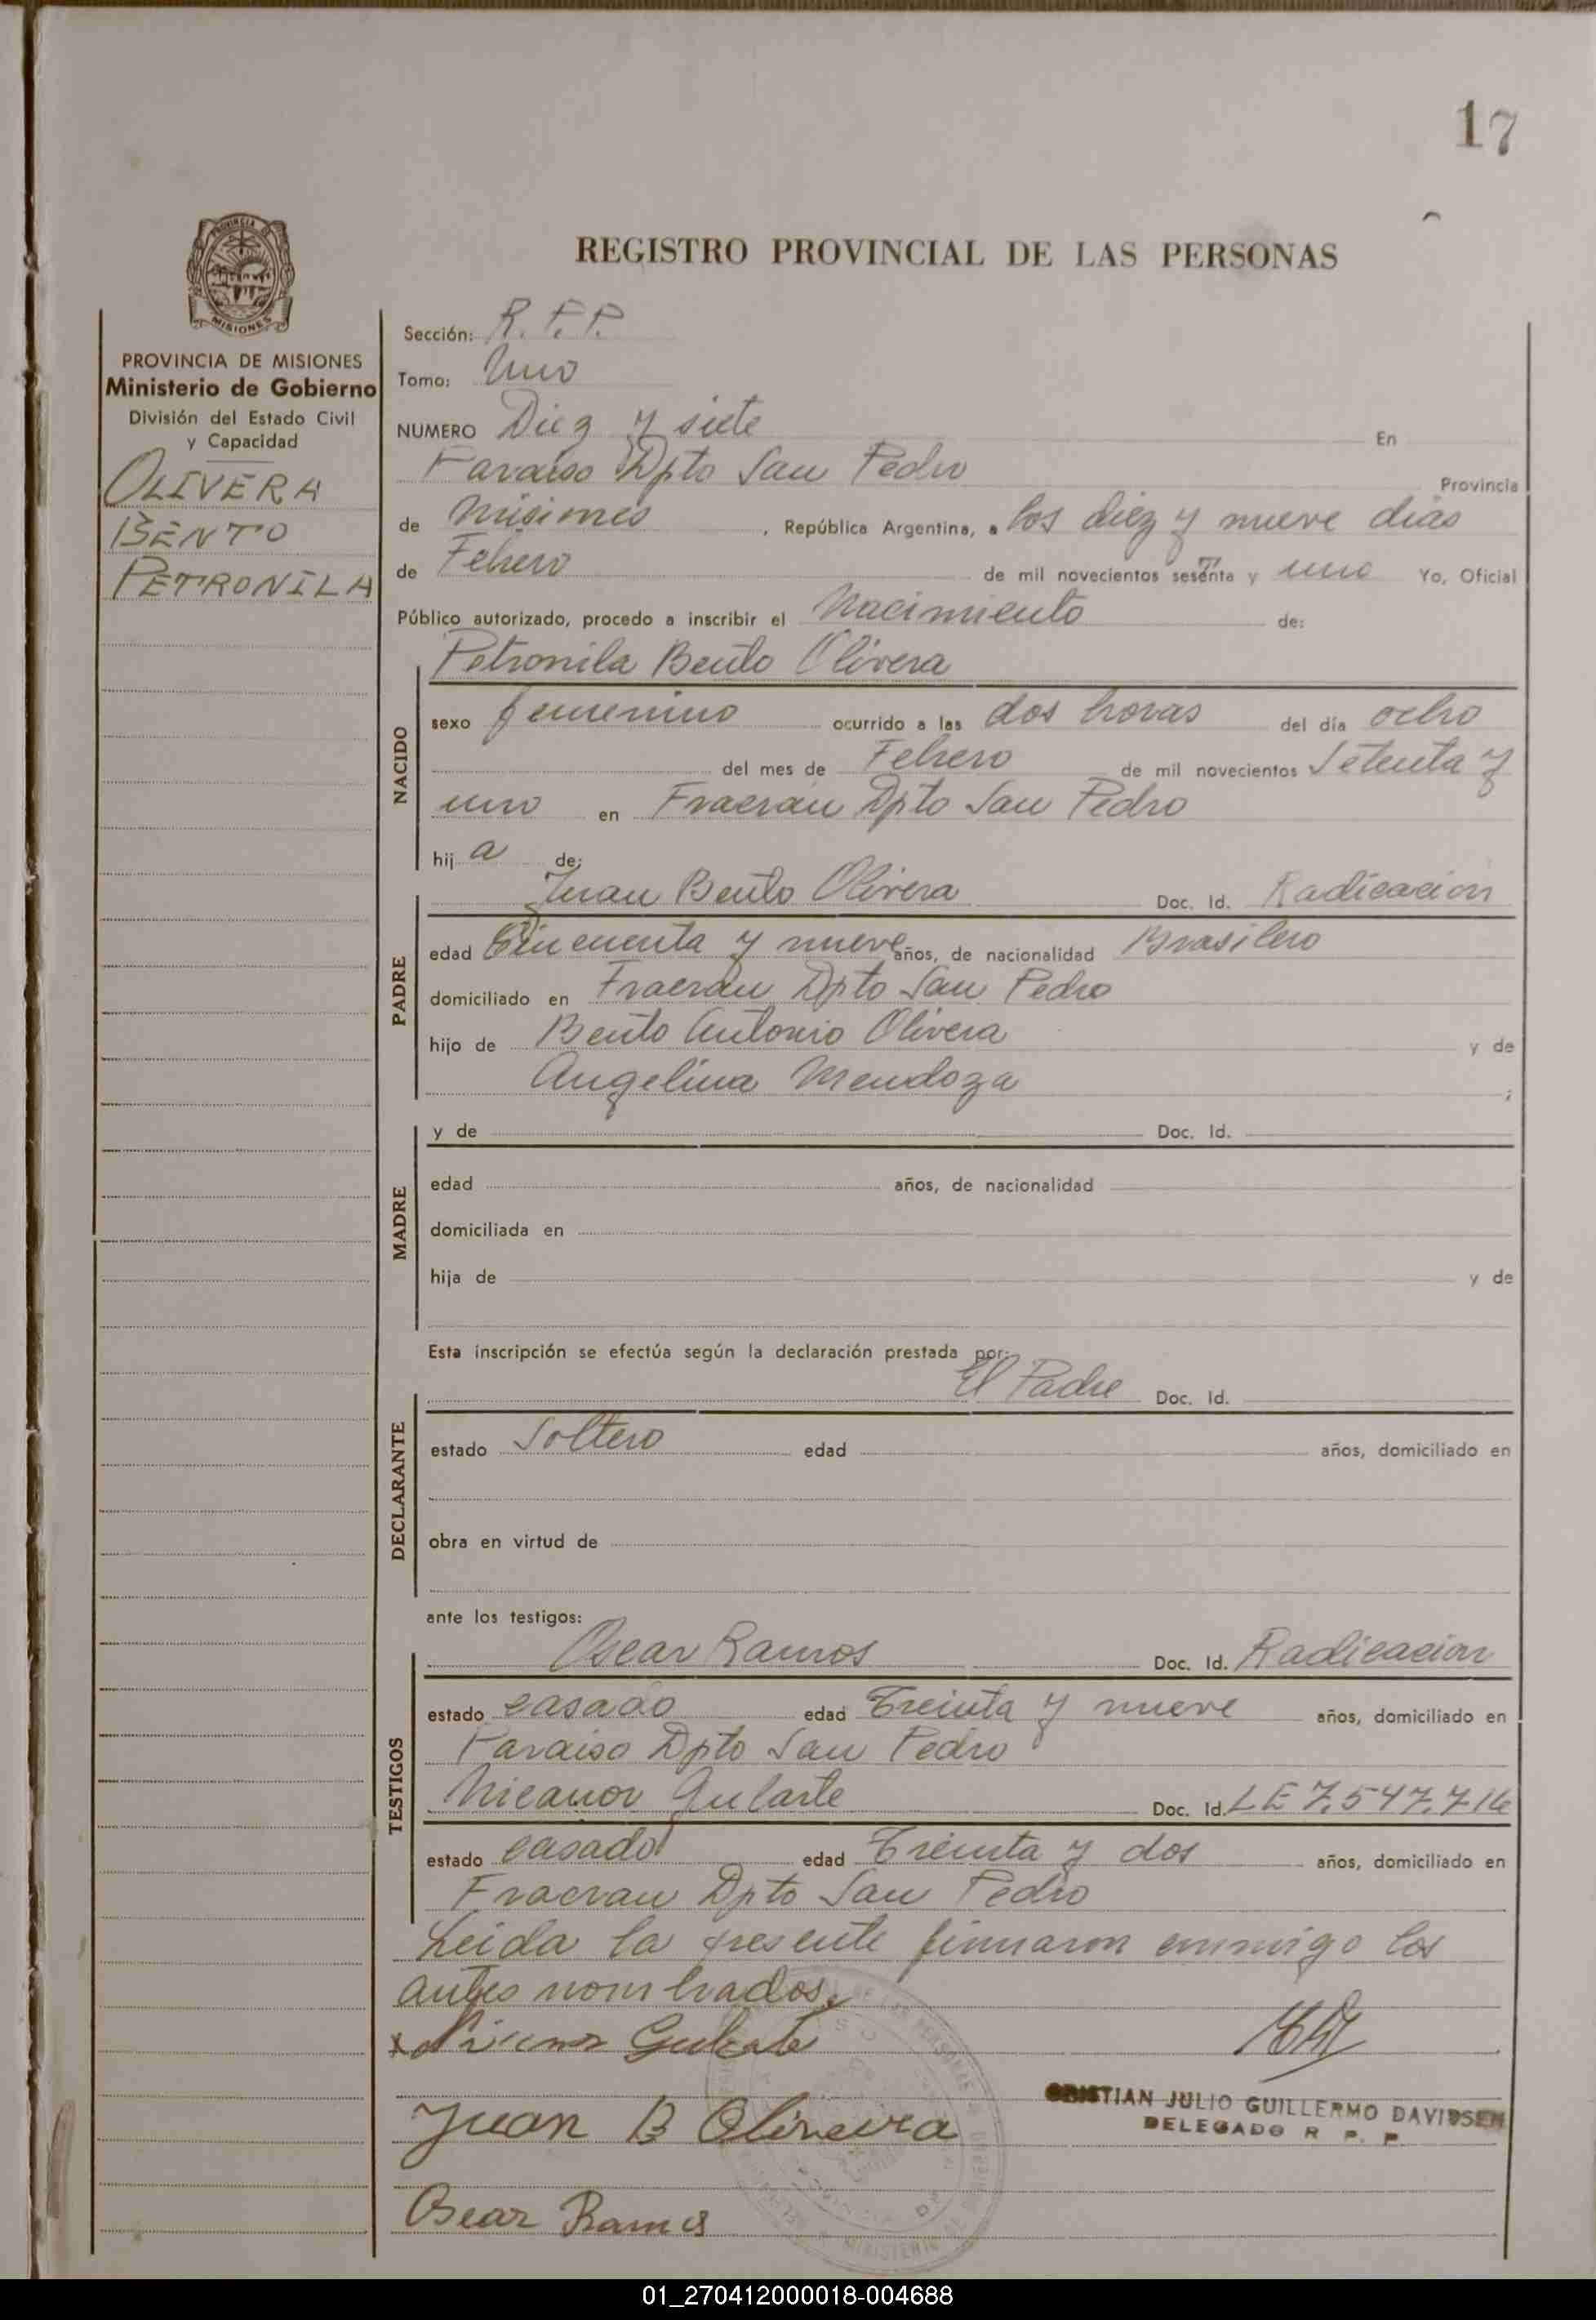 17
REGISTRO PROVINCIAL DE LAS PERSONAS
PROVINCIA DE
MISIONES
PROVINCIA DE MISIONES
Ministerio de Gobierno
División del Estado Civil
y Capacidad
OLIVERA
BENTO
PETRONILA
Sección: R. P. P.
Tomo: Uno
NUMERO Diez y siete En
Paraiso Dpto San Pedro Provincia
de Misiones, República Argentina, a los diez y nueve dias
de Febrero de mil novecientos sesenta y uno Yo, Oficial
Público autorizado, procedo a inscribir el Nacimiento de:
Petronila Bento Olivera
NACIDO
sexo femenino ocurrido a las dos horas del día ocho
del mes de Febrero de mil novecientos Setenta y
uno en Fracran Dpto San Pedro
hij a de:
PADRE
Juan Bento Olivera Doc. Id. Radicacion
edad Cincuenta y nueve años, de nacionalidad Brasilero
domiciliado en Fracran Dpto San Pedro
hijo de Bento Antonio Olivera y de
Angelina Mendoza ;
MADRE
y de Doc. Id.
edad años, de nacionalidad
domiciliada en
hija de y de
Esta inscripción se efectúa según la declaración prestada por:
DECLARANTE
El Padre Doc. Id.
estado Soltero edad años, domiciliado en
obra en virtud de
ante los testigos:
TESTIGOS
Oscar Ramos Doc. Id. Radicacion
estado casado edad Treinta y nueve años, domiciliado en
Paraiso Dpto San Pedro
Nicanor Gularte Doc. Id. LE 7.547.716
estado casado edad Treinta y dos años, domiciliado en
Fracran Dpto San Pedro
Leida la presente firmaron conmigo los
antes nombrados.
x Nicanor Gularte
CRISTIAN JULIO GUILLERMO DAVIDSEN
DELEGADO R. P. P.
Juan B Oliveira
Oscar Ramos
01_270412000018-004688